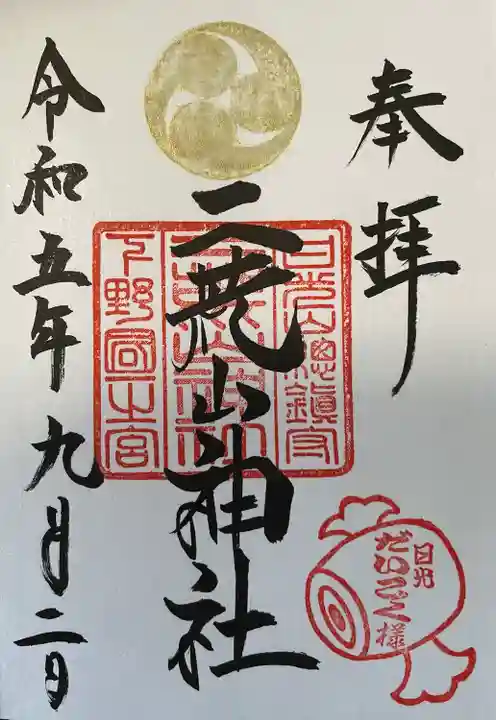 奉拝
日光山総鎮守
二荒山神社
下野國一之宮
二荒山神社
令和五年九月二日
日光
だいこく様